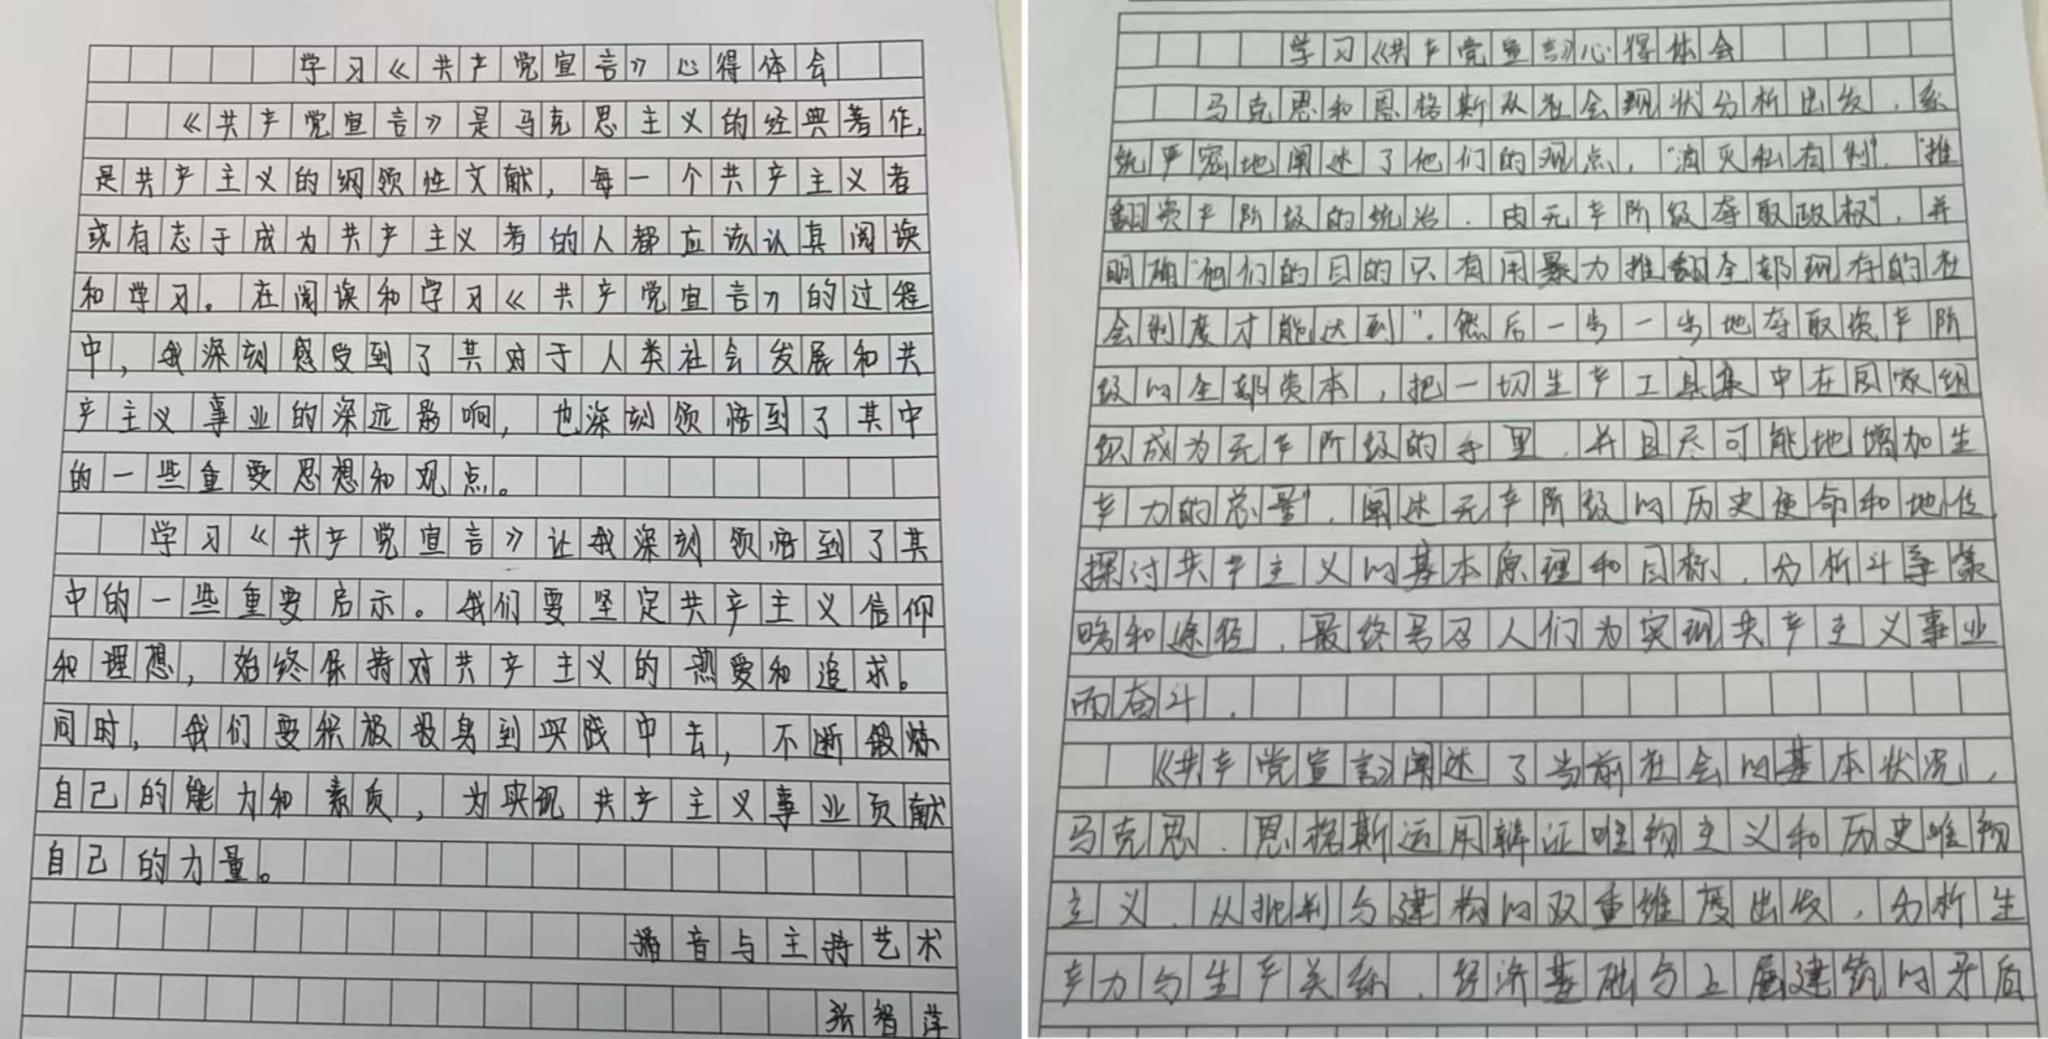 学习《共产党宣言》心得体会
《共产党宣言》是马克思主义的经典著作,
是共产主义的纲领性文献，每一个共产主义者
或有志于成为共产主义者的人都应该认真阅读
和学习。在阅读和学习《共产党宣言》的过程
中，我深刻感受到了其对于人类社会发展和共
产主义事业的深远影响，也深刻领悟到了其中
的一些重要思想和观点。
学习《共产党宣言》让我深刻领悟到了其
中的一些重要启示。我们要坚定共产主义信仰
和理想，始终保持对共产主义的热爱和追求。
同时，我们要积极投身到实践中去，不断锻炼
自己的能力和素质，为实现共产主义事业贡献
自己的力量。
播音与主持艺术
张智萍
学习《共产党宣言》心得体会
马克思和恩格斯从社会现状分析出发，系
统严密地阐述了他们的观点，“消灭私有制”.“推
翻资产阶级的统治．由无产阶级夺取政权”，并
明确“他们的目的只有用暴力推翻全部现存的社
会制度才能达到”．然后一步一步地夺取资产阶
级的全部资本，把一切生产工具集中在国家组
织成为无产阶级的手里．并且尽可能地增加生
产力的总量”．阐述无产阶级的历史使命和地位
探讨共产主义的基本原理和目标．分析斗争策
略和途径．最终号召人们为实现共产主义事业
而奋斗．
《共产党宣言》阐述了当前社会的基本状况，
马克思．恩格斯运用辩证唯物主义和历史唯物
主义．从批判与建构的双重维度出发．分析生
产力与生产关系．经济基础与上层建筑的矛盾